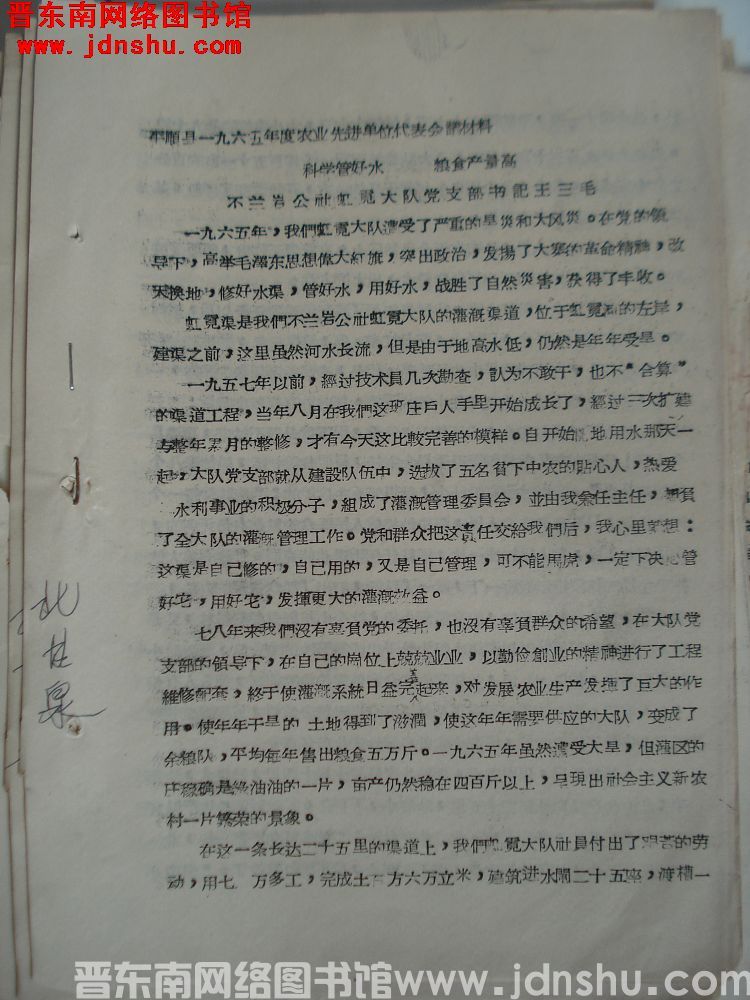 晋东南网络图书馆
www.jdnshu.com
平順县一九六五年度农业先进单位代表会議材料
科学管好水 粮食产量高
不兰岩公社虹霓大队党支部书記王三毛
一九六五年，我們虹霓大队遭受了严重的旱災和大风災。在党的領
导下，高举毛澤东思想偉大紅旗，突出政治，发揚了大寨的革命精神，改
天換地，修好水渠，管好水，用好水，战胜了自然災害，获得了丰收。
虹霓渠是我們不兰岩公社虹霓大队的灌漑渠道，位于虹霓河的左岸，
建渠之前，这里虽然河水长流，但是由于地高水低，仍然是年年受旱。
一九五七年以前，經过技术員几次勘查，認为不敢干，也不“合算”
的渠道工程，当年八月在我們这班庄戶人手里开始成长了，經过三次扩建
与整年累月的整修，才有今天这比較完善的模样。自开始浇地用水那天一
起，大队党支部就从建設队伍中，选拔了五名貧下中农的貼心人，热爱
水利事业的积极分子，組成了灌漑管理委員会，並由我兼任主任，担負
了全大队的灌漑管理工作。党和群众把这責任交給我們后，我心里想：
这渠是自己修的，自己用的，又是自己管理，可不能馬虎，一定下决心管
好它，用好它，发揮更大的灌漑效益。
七八年来我們沒有辜負党的委托，也沒有辜負群众的希望，在大队党
支部的領导下，在自己的岗位上兢兢业业，以勤俭創业的精神进行了工程
維修配套，終于使灌漑系統日益完善起来，对发展农业生产发揮了巨大的作
用。使年年干旱的 土地得到了滋潤，使这年年需要供应的大队，变成了
余粮队，平均每年售出粮食五万斤。一九六五年虽然遭受大旱，但灌区的
庄稼确是綠油油的一片，亩产仍然稳在四百斤以上，呈現出社会主义新农
村一片繁荣的景象。
在这一条长达二十五里的渠道上，我們虹霓大队社員付出了艰苦的劳
动，用七 万多工，完成土石方六万立米，建筑进水閘二十五座，渡槽一
北甘泉
晋东南网络图书馆www.jdnshu.com